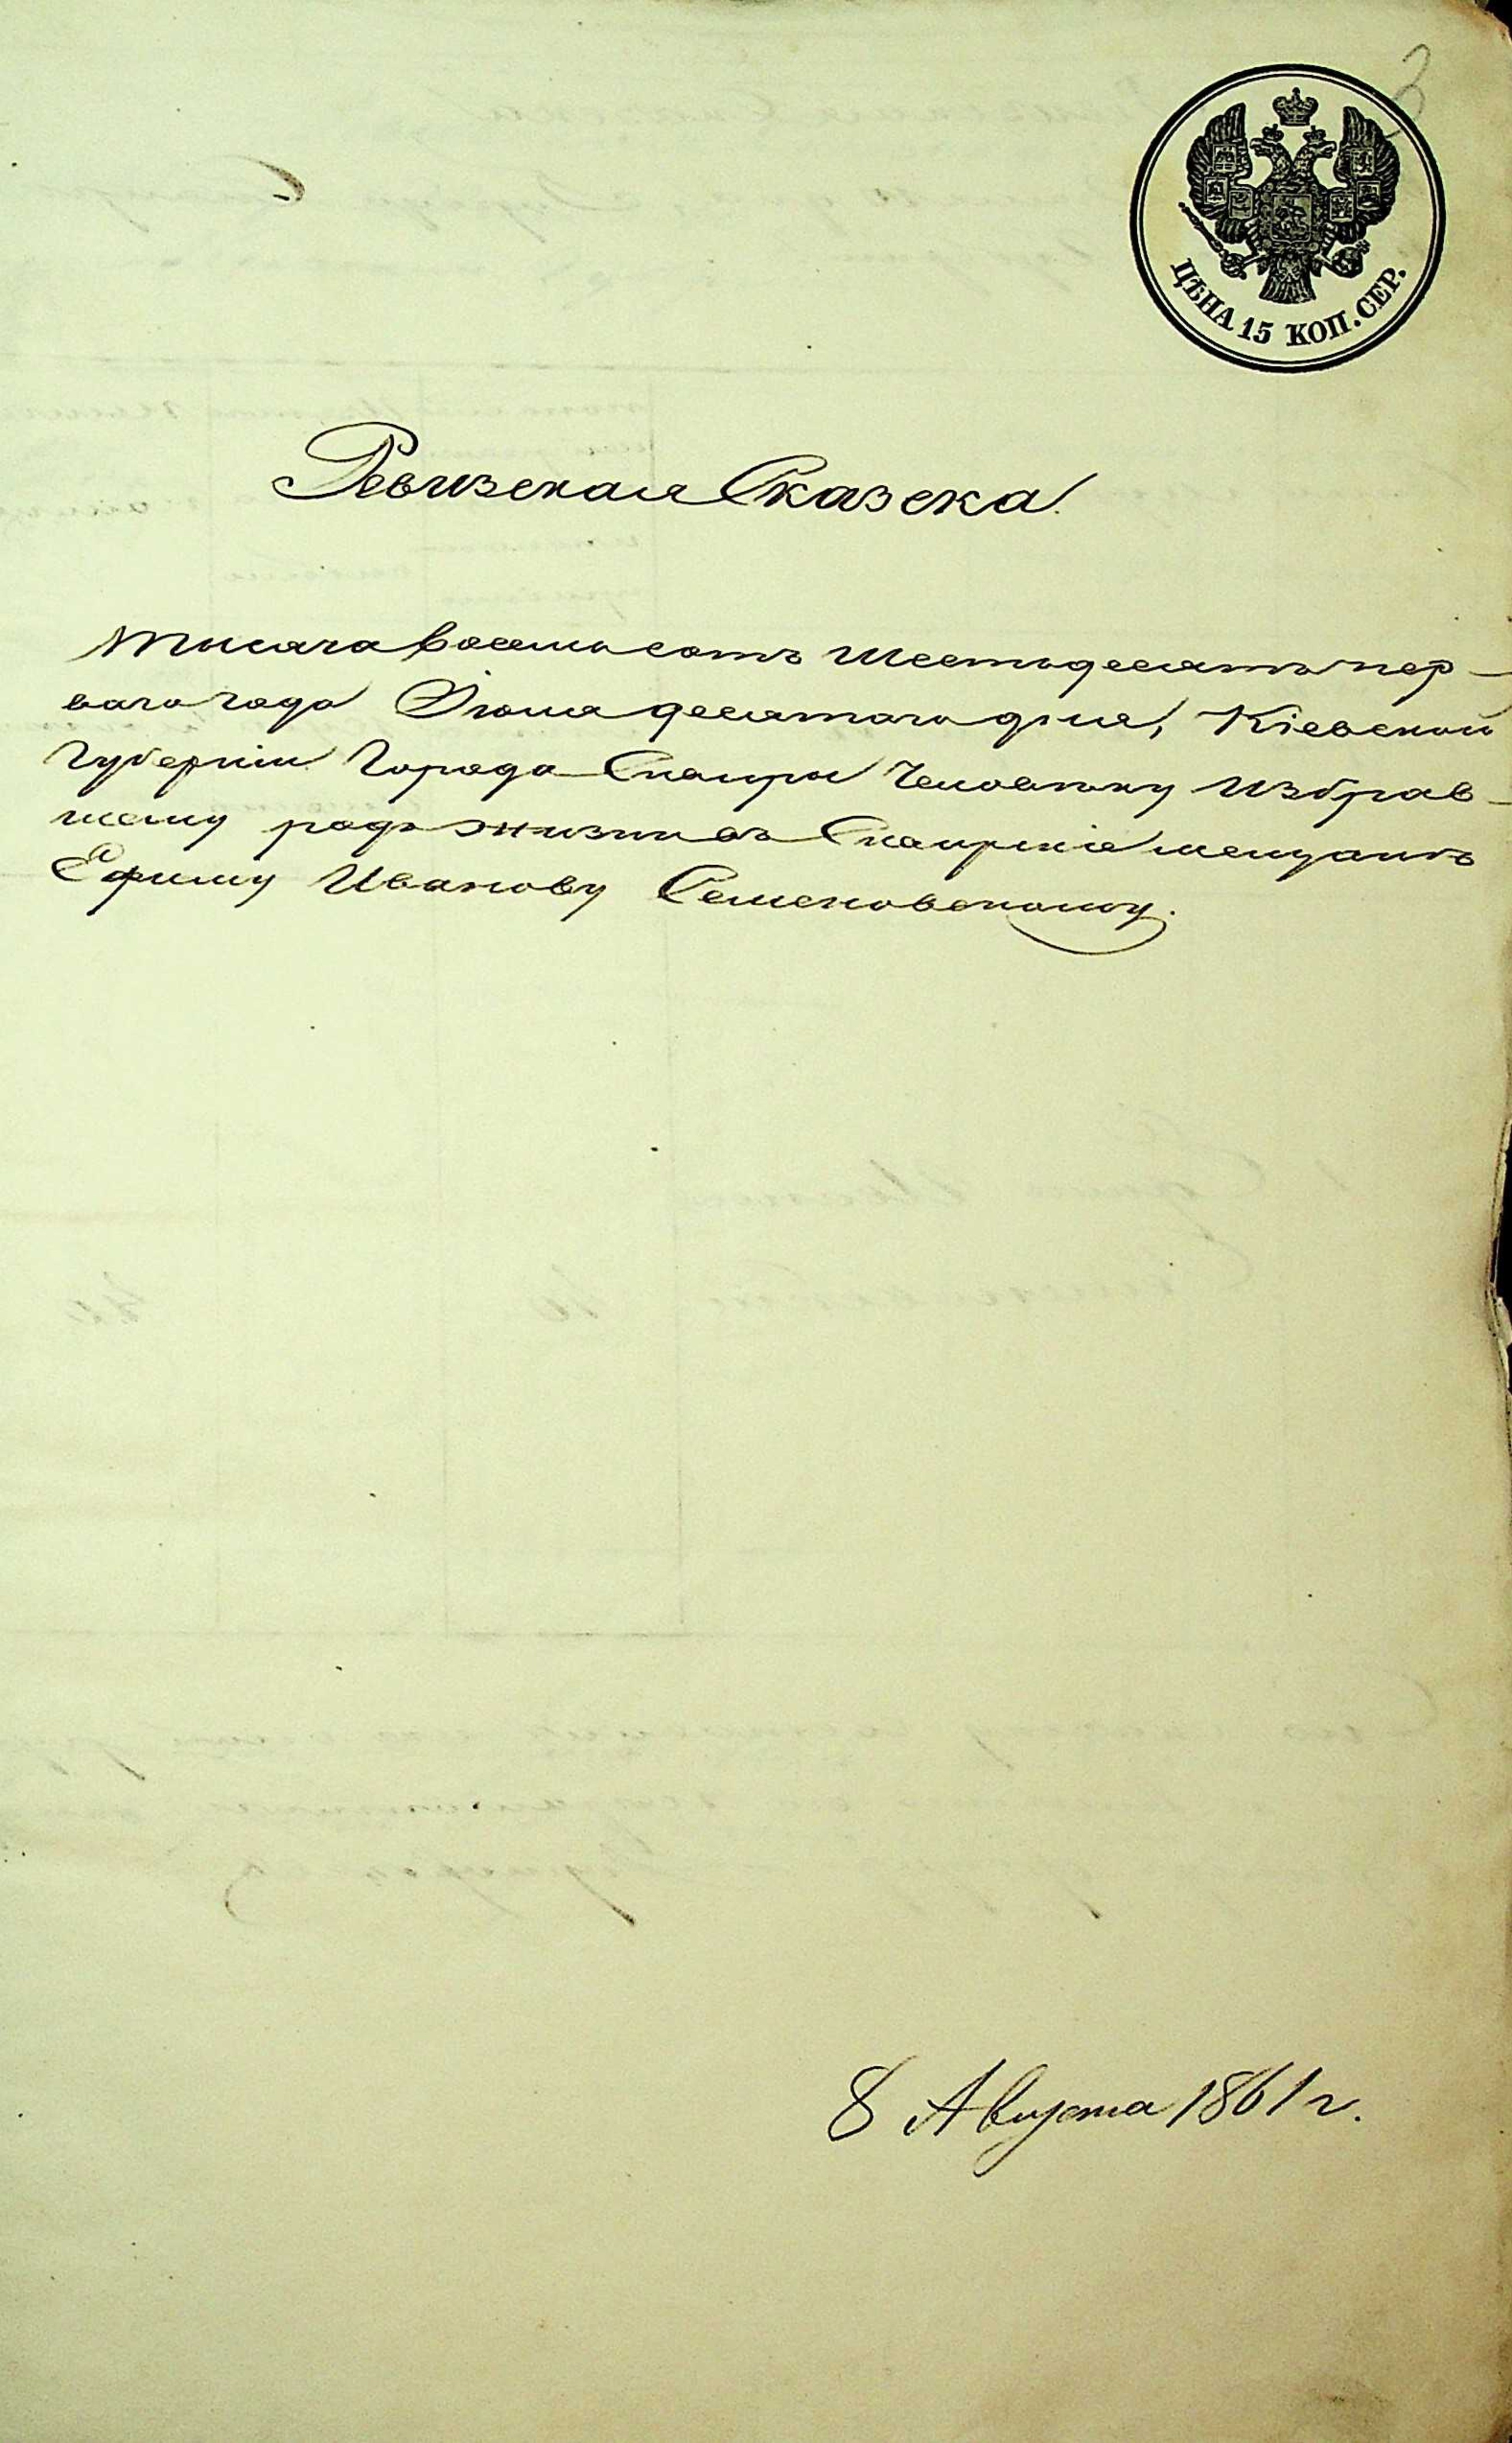 3
ЦѢНА 15 КОП. СЕР.
Ревизская Сказска.
тысяча восемьсотъ шестьдесятъ пер-
ваго года Іюля десятаго дня, Кіевской
Губерніи Города Сквиры Человѣку Избрав-
шему родъ жизни въ Сквирскіе мещанъ
Ефиму Иванову Семеновскому.
8 Августа 1861 г.